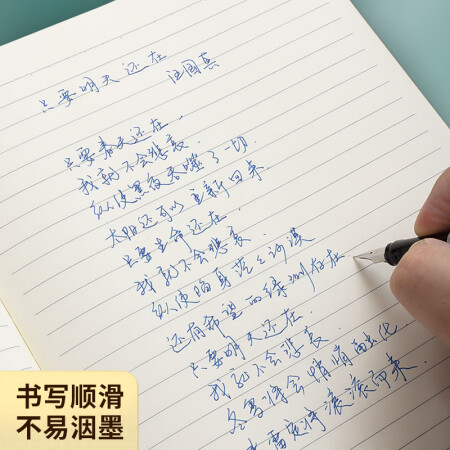 只要明天还在
汪国真
只要春天还在
我就不会悲哀
纵使黑夜吞噬了一切
太阳还可以重新回来
只要生命还在
我就不会悲哀
纵使陷身茫茫沙漠
还有希望的绿洲存在
只要明天还在
我就不会悲哀
冬雪终会悄悄融化
春雷定将滚滚而来
书写顺滑
不易洇墨